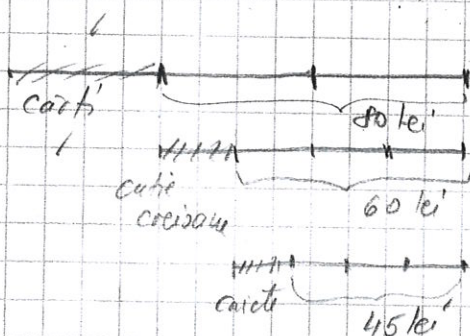 cărți
80 lei
cutie
creioane
60 lei
caiete
45 lei